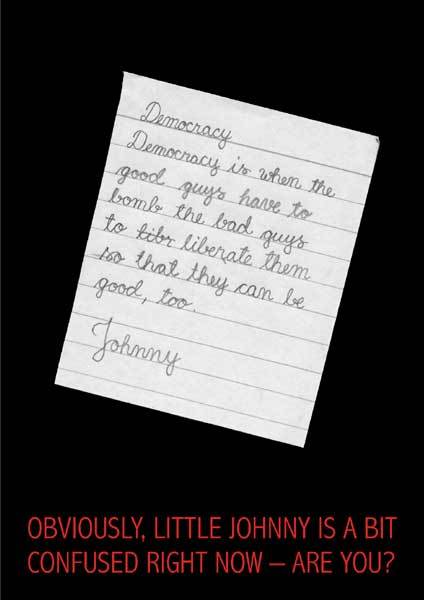 Democracy
Democracy is when the
good guys have to
bomb the bad guys
to libr liberate them
so that they can be
good, too.
Johnny
OBVIOUSLY, LITTLE JOHNNY IS A BIT
CONFUSED RIGHT NOW – ARE YOU?